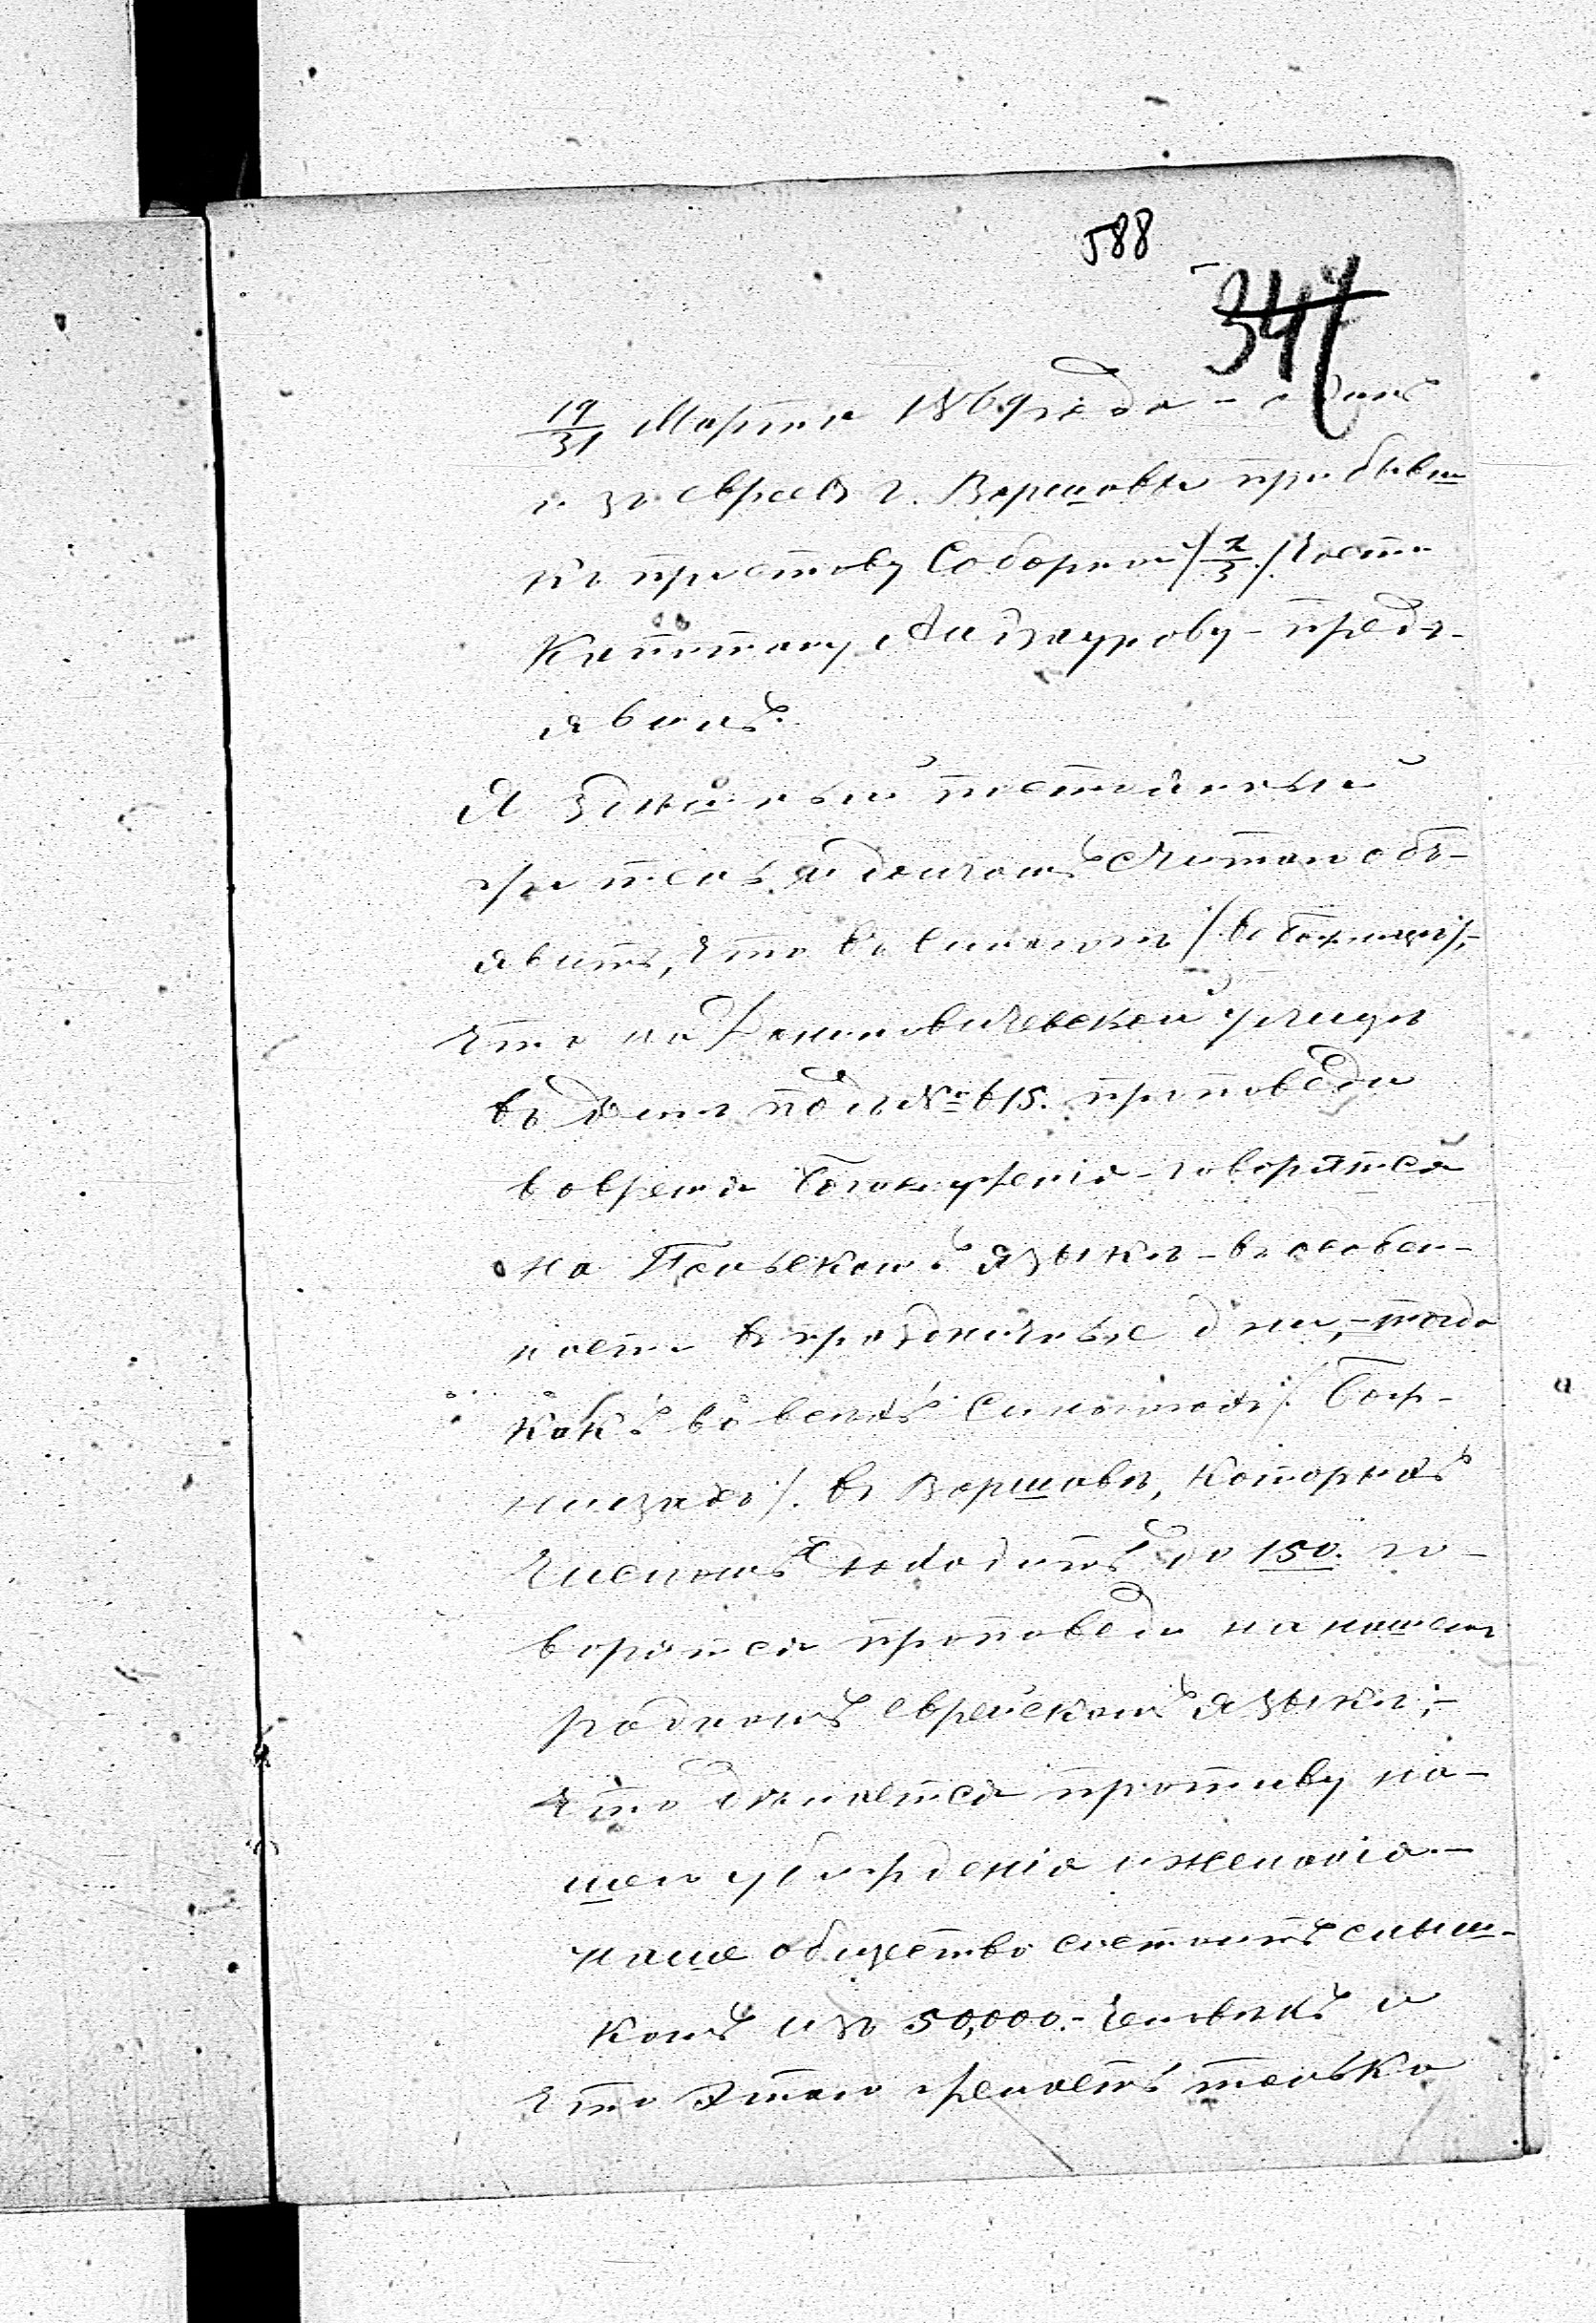 588
347
19/31 Марта 1869 года – одинъ
изъ евреевъ г. Варшавы прибывш
къ приставу Соборной /2/3./ Части
Капитану Айгаурову – предъ-
явилъ.
Я здѣшній постоянный
житель и долгомъ считаю объ-
явить, что въ Синагогѣ /въ божницѣ/,-
что на Даниловичевской улицѣ
въ домѣ подъ № 615. проповеди
вовремя Богослуженія – говорятся
на Польскомъ языкѣ – въ особен-
ности въ праздничные дни, – тогда
какъ во всехъ Синагогахъ /. Бож-
ницахъ /. въ Варшавѣ, которыхъ
числомъ доходитъ до 150. го-
ворятся проповеди на нашемъ
родномъ еврейскомъ языкѣ; –
что дѣлается противу на-
шего убежденія и желанія. –
наше общество состоитъ слыш-
комъ изъ 50,000. – человѣкъ и
что этаго желаетъ только